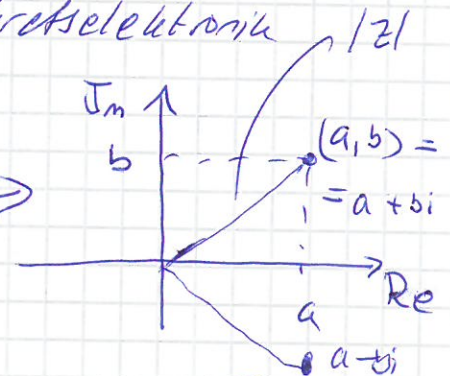 kretselektronik
|z|
Im
b
(a,b) =
= a + bi
Re
a
a - bi